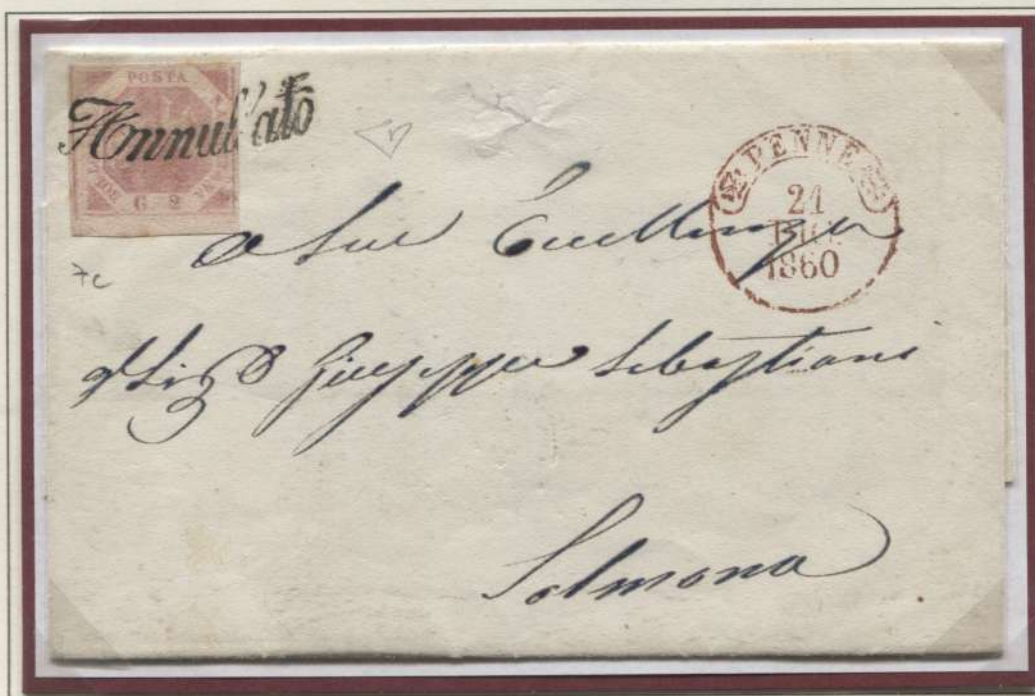 POSTA
Annullato
G. 2
BOL
PENNE
21
DIC.
1860
A Sua Eccellenza
7c
Sig.D Giuseppe Sebastiani
Solmona